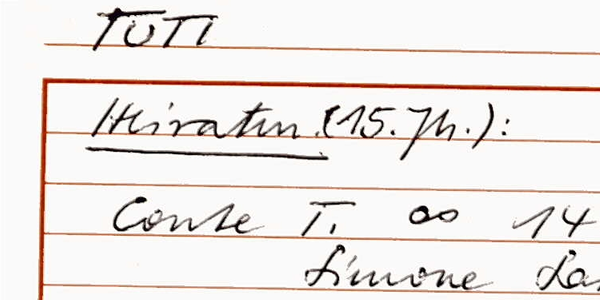 TUTI
Heiraten (15. Jh.):
Conte T. ∞ 14
Simone